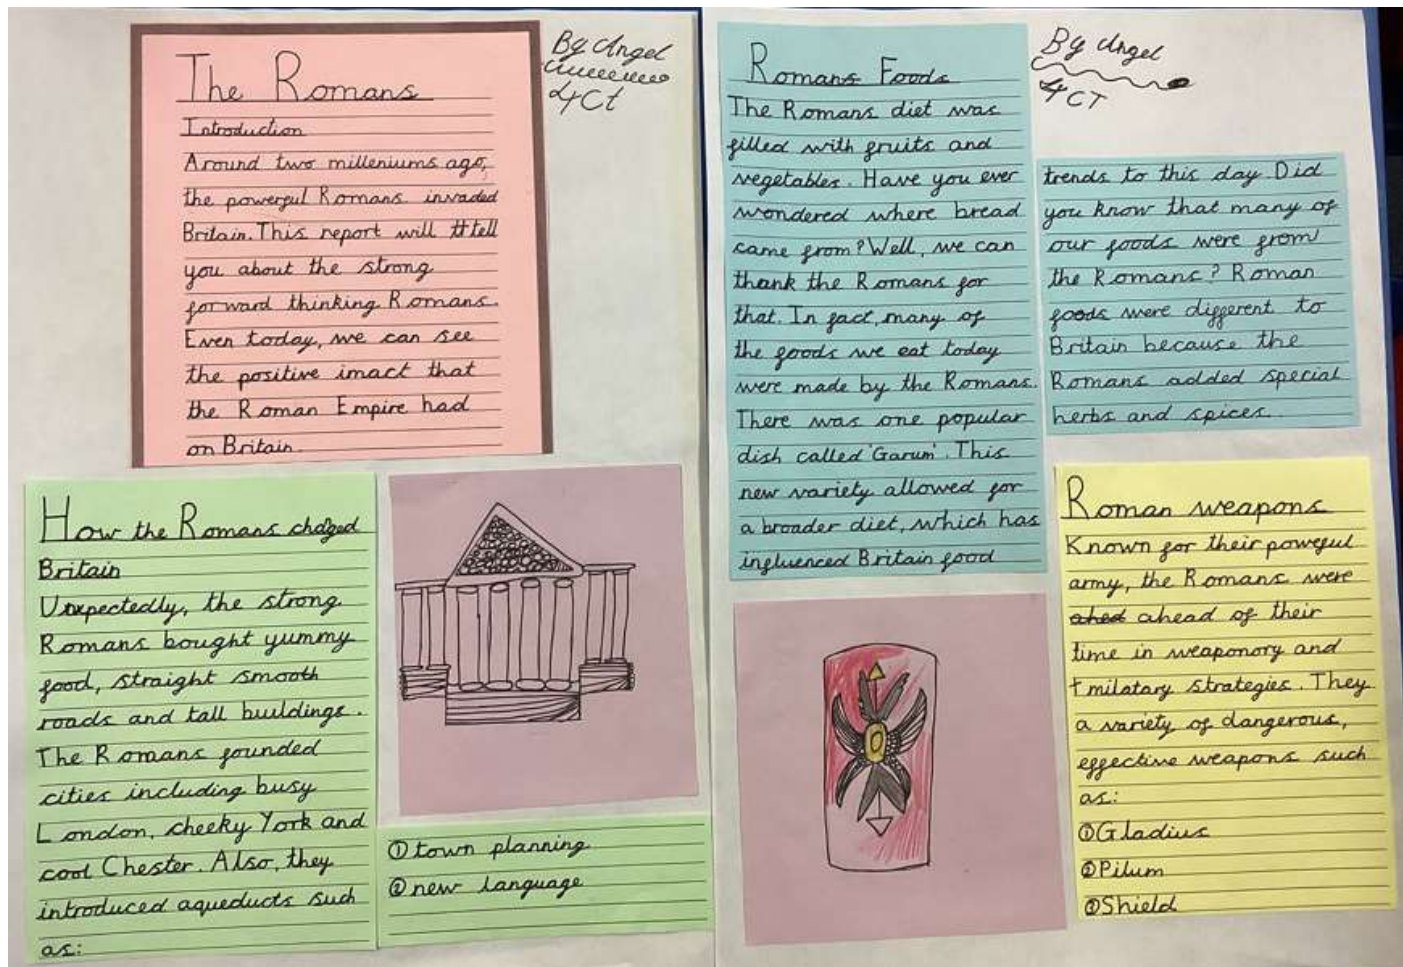 The Romans
By Angel
4Ct
Introduction
Around two milleniums ago,
the powerful Romans invaded
Britain. This report will tell
you about the strong
forward thinking Romans.
Even today, we can see
the positive imact that
the Roman Empire had
on Britain.
How the Romans chaged
Britain
Unxpectedly, the strong
Romans bought yummy
food, straight smooth
roads and tall buildings.
The Romans founded
cities including busy
London, cheeky York and
cool Chester. Also, they
introduced aqueducts such
as:
① town planning
② new language
Romans Foods
By Angel
4CT
The Romans diet was
filled with fruits and
vegetables. Have you ever
wondered where bread
came from? Well, we can
thank the Romans for
that. In fact, many of
the foods we eat today
were made by the Romans.
There was one popular
dish called 'Garum'. This
new variety allowed for
a broader diet, which has
influenced Britain food
trends to this day. Did
you know that many of
our foods were from
the Romans? Roman
foods were different to
Britain because the
Romans added special
herbs and spices.
Roman weapons
Known for their poweful
army, the Romans were
ahead of their
time in weaponory and
milatary strategies. They
a variety of dangerous,
effective weapons such
as:
① Gladius
② Pilum
③ Shield